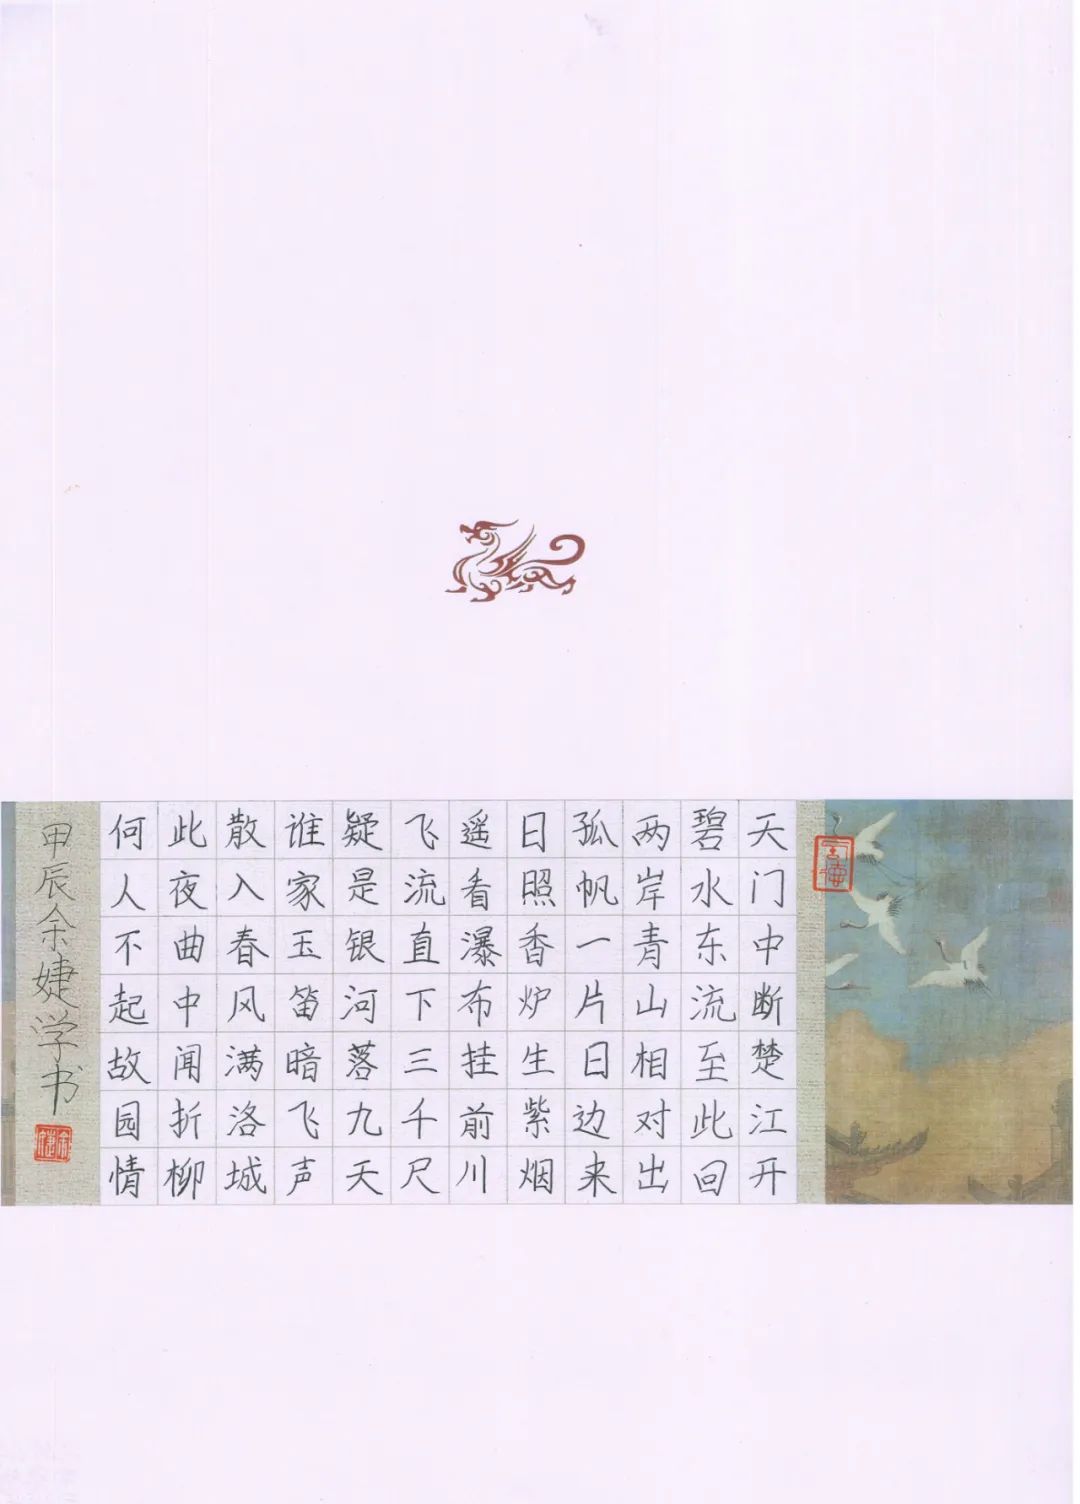 天门中断楚江开
碧水东流至此回
两岸青山相对出
孤帆一片日边来
日照香炉生紫烟
遥看瀑布挂前川
飞流直下三千尺
疑是银河落九天
谁家玉笛暗飞声
散入春风满洛城
此夜曲中闻折柳
何人不起故园情
甲辰余婕学书